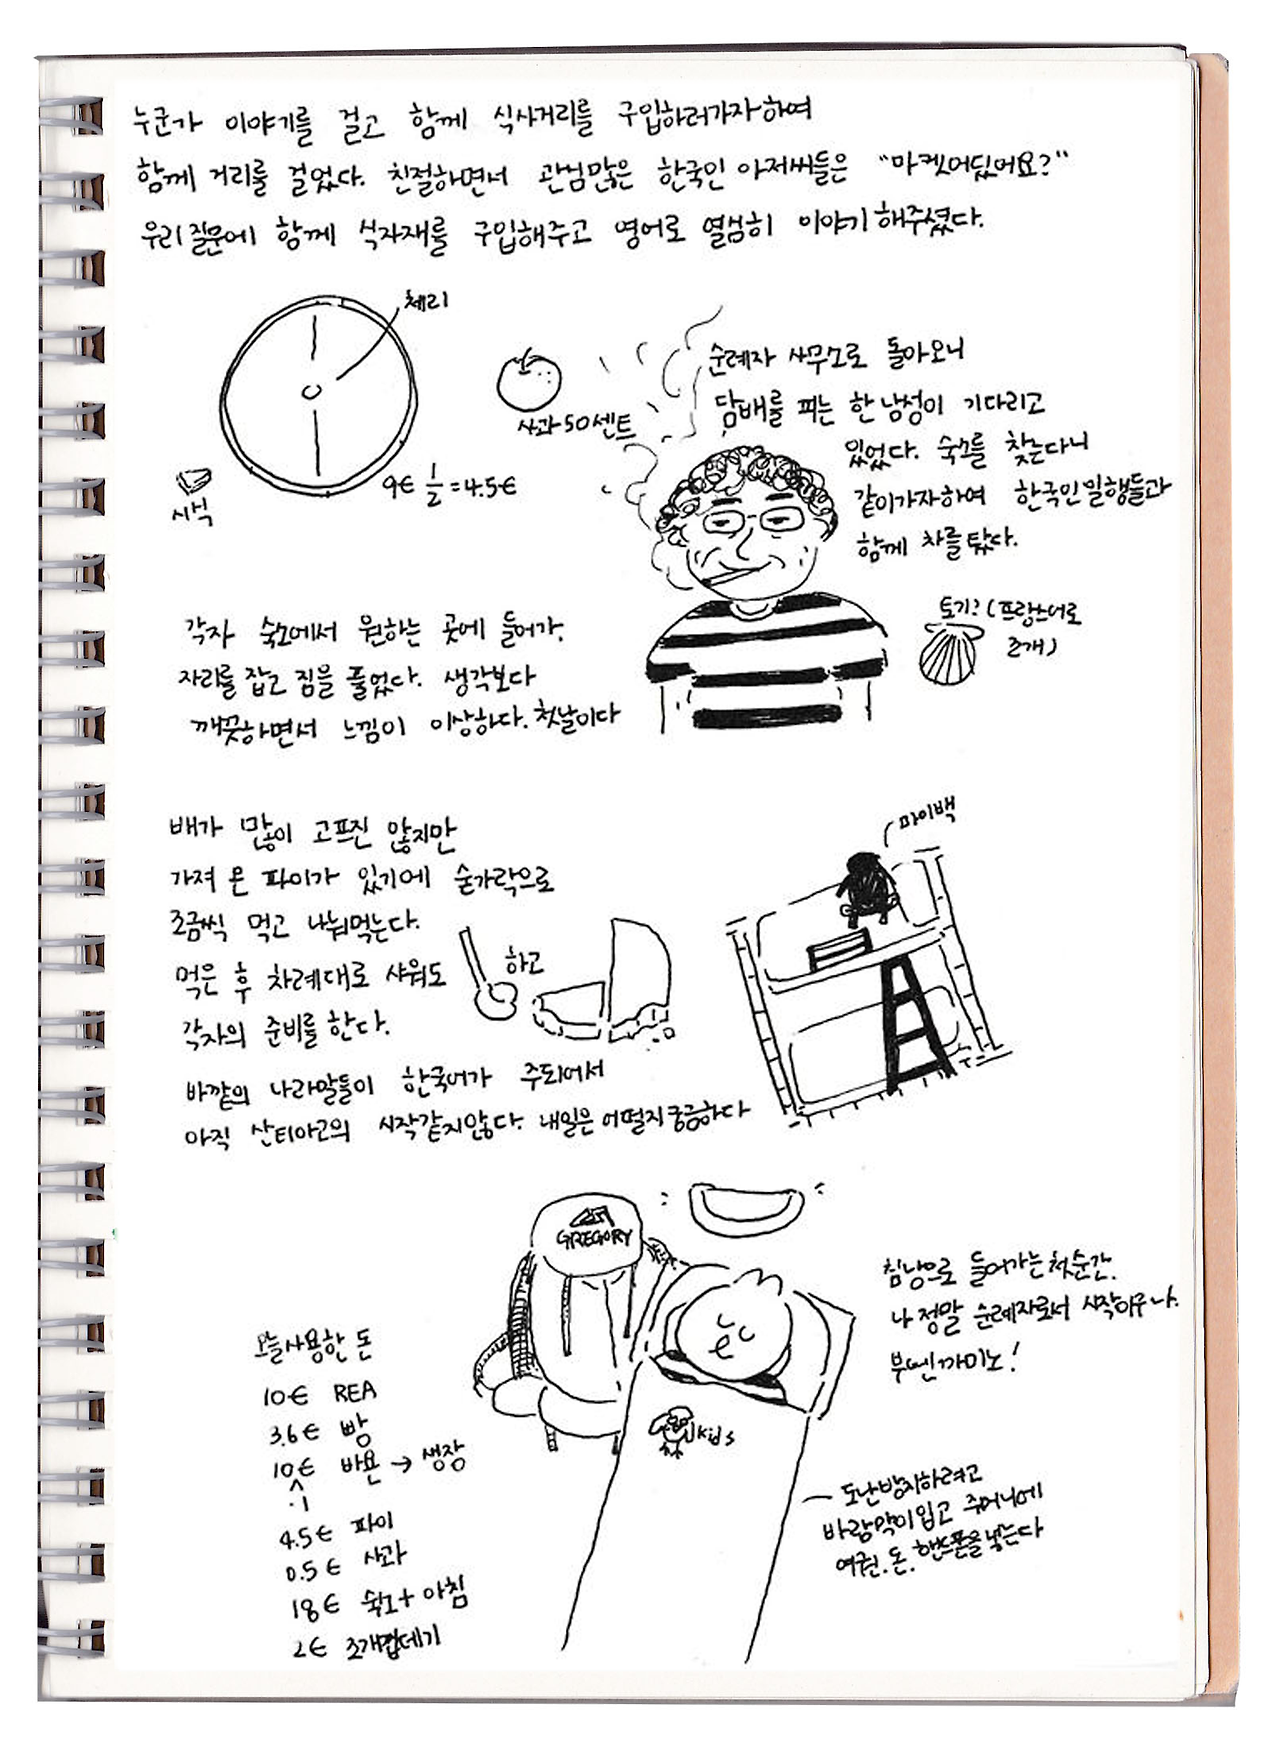 누군가 이야기를 걸고 함께 식사거리를 구입하러가자하여
함께 거리를 걸었다. 친절하면서 관심많은 한국인 아저씨들은 "마켓어딨어요?"
우리 질문에 함께 식자재를 구입해주고 영어로 열심히 이야기 해주셨다.
체리
사과 50센트
시식
9€ 1/2 = 4.5€
순례자 사무소로 돌아오니
담배를 피는 한 남성이 기다리고
있었다. 숙소를 찾는다니
같이가자하여 한국인 일행들과
함께 차를 탔다.
토기? (프랑스어로
조개)
각자 숙소에서 원하는 곳에 들어가.
자리를 잡고 짐을 풀었다. 생각보다
깨끗하면서 느낌이 이상하다. 첫날이다
배가 많이 고프진 않지만
가져 온 파이가 있기에 숟가락으로
조금씩 먹고 나눠먹는다.
먹은 후 차례대로 샤워도
각자의 준비를 한다.
하고
파이백
바깥의 나라말들이 한국어가 주되어서
아직 산티아고의 시작같지않다. 내일은 어떨지 궁금하다
GREGORY
침낭으로 들어가는 첫순간.
나 정말 순례자로서 시작이구나.
부엔 까미노!
kids
도난방지하려고
바람막이 입고 주머니에
여권. 돈. 핸드폰을 넣는다
오늘 사용한 돈
10€ REA
3.6€ 빵
10€ 바욘 → 생장
.1
4.5€ 파이
0.5€ 사과
18€ 숙소+아침
2€ 조개껍데기